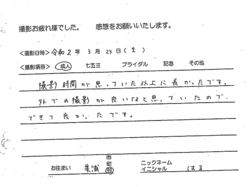 撮影お疲れ様でした。 感想をお願いいたします。
<撮影日時> 令和 2 年 3 月 23 日 ( )
<撮影項目> 成人 七五三 ブライダル 記念 その他
撮影時間が思っていた以上に長かったです。
外での撮影が良いなと思っていたので、
できて良かったです。
お住まい 市 町 ニックネーム イニシャル